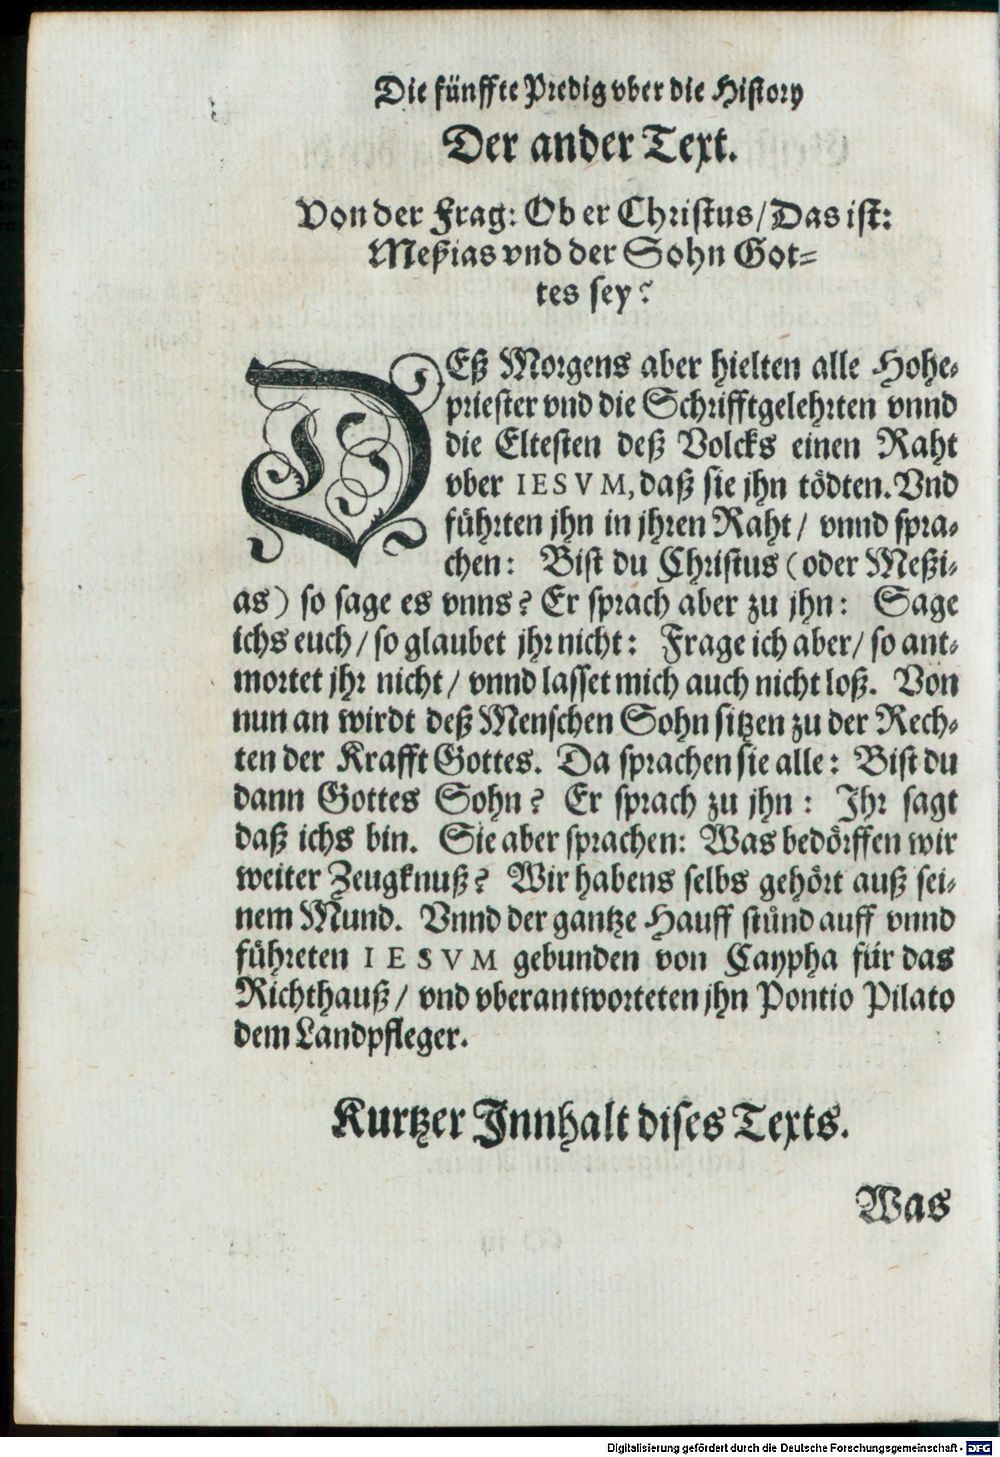 Die fünffte Predig vber die History
Der ander Text.
Von der Frag: Ob er Christus/ Das ist:
Meßias vnd der Sohn Got=
tes sey?
DEß Morgens aber hielten alle Hohe=
priester vnd die Schrifftgelehrten vnnd
die Eltesten deß Volcks einen Raht
vber IESVM, daß sie jhn tödten. Vnd
führten jhn in jhren Raht/ vnnd spra=
chen: Bist du Christus (oder Meßi=
as) so sage es vnns? Er sprach aber zu jhn: Sage
ichs euch/ so glaubet jhr nicht: Frage ich aber/ so ant=
wortet jhr nicht/ vnnd lasset mich auch nicht loß. Von
nun an wirdt deß Menschen Sohn sitzen zu der Rech=
ten der Krafft Gottes. Da sprachen sie alle: Bist du
dann Gottes Sohn? Er sprach zu jhn: Ihr sagt
daß ichs bin. Sie aber sprachen: Was bedörffen wir
weiter Zeugknuß? Wir habens selbs gehört auß sei=
nem Mund. Vnnd der gantze Hauff stůnd auff vnnd
führeten IESVM gebunden von Caypha für das
Richthauß/ vnd vberantworteten jhn Pontio Pilato
dem Landpfleger.
Kurtzer Innhalt dises Texts.
Was
Digitalisierung gefördert durch die Deutsche Forschungsgemeinschaft - DFG